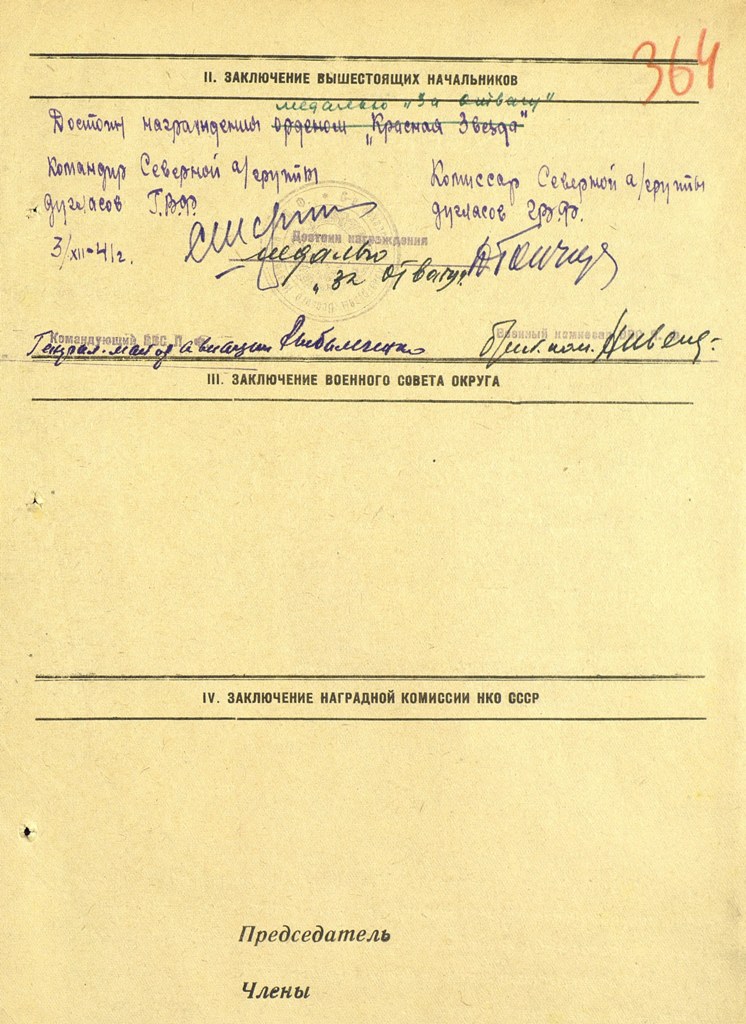 364
II. ЗАКЛЮЧЕНИЕ ВЫШЕСТОЯЩИХ НАЧАЛЬНИКОВ
медалью „За отвагу"
Достоин награждения орденом „Красная Звезда"
Командир Северной а/группы
Комиссар Северной а/группы
дугласов Г.В.Ф.
дугласов ГВФ.
Достоин награждения
3/XII-41г.
медалью
„за отвагу".
Командующий ВВС
Военный комиссар ВВС
Генерал-майор авиации Рыбальченко
III. ЗАКЛЮЧЕНИЕ ВОЕННОГО СОВЕТА ОКРУГА
IV. ЗАКЛЮЧЕНИЕ НАГРАДНОЙ КОМИССИИ НКО СССР
Председатель
Члены